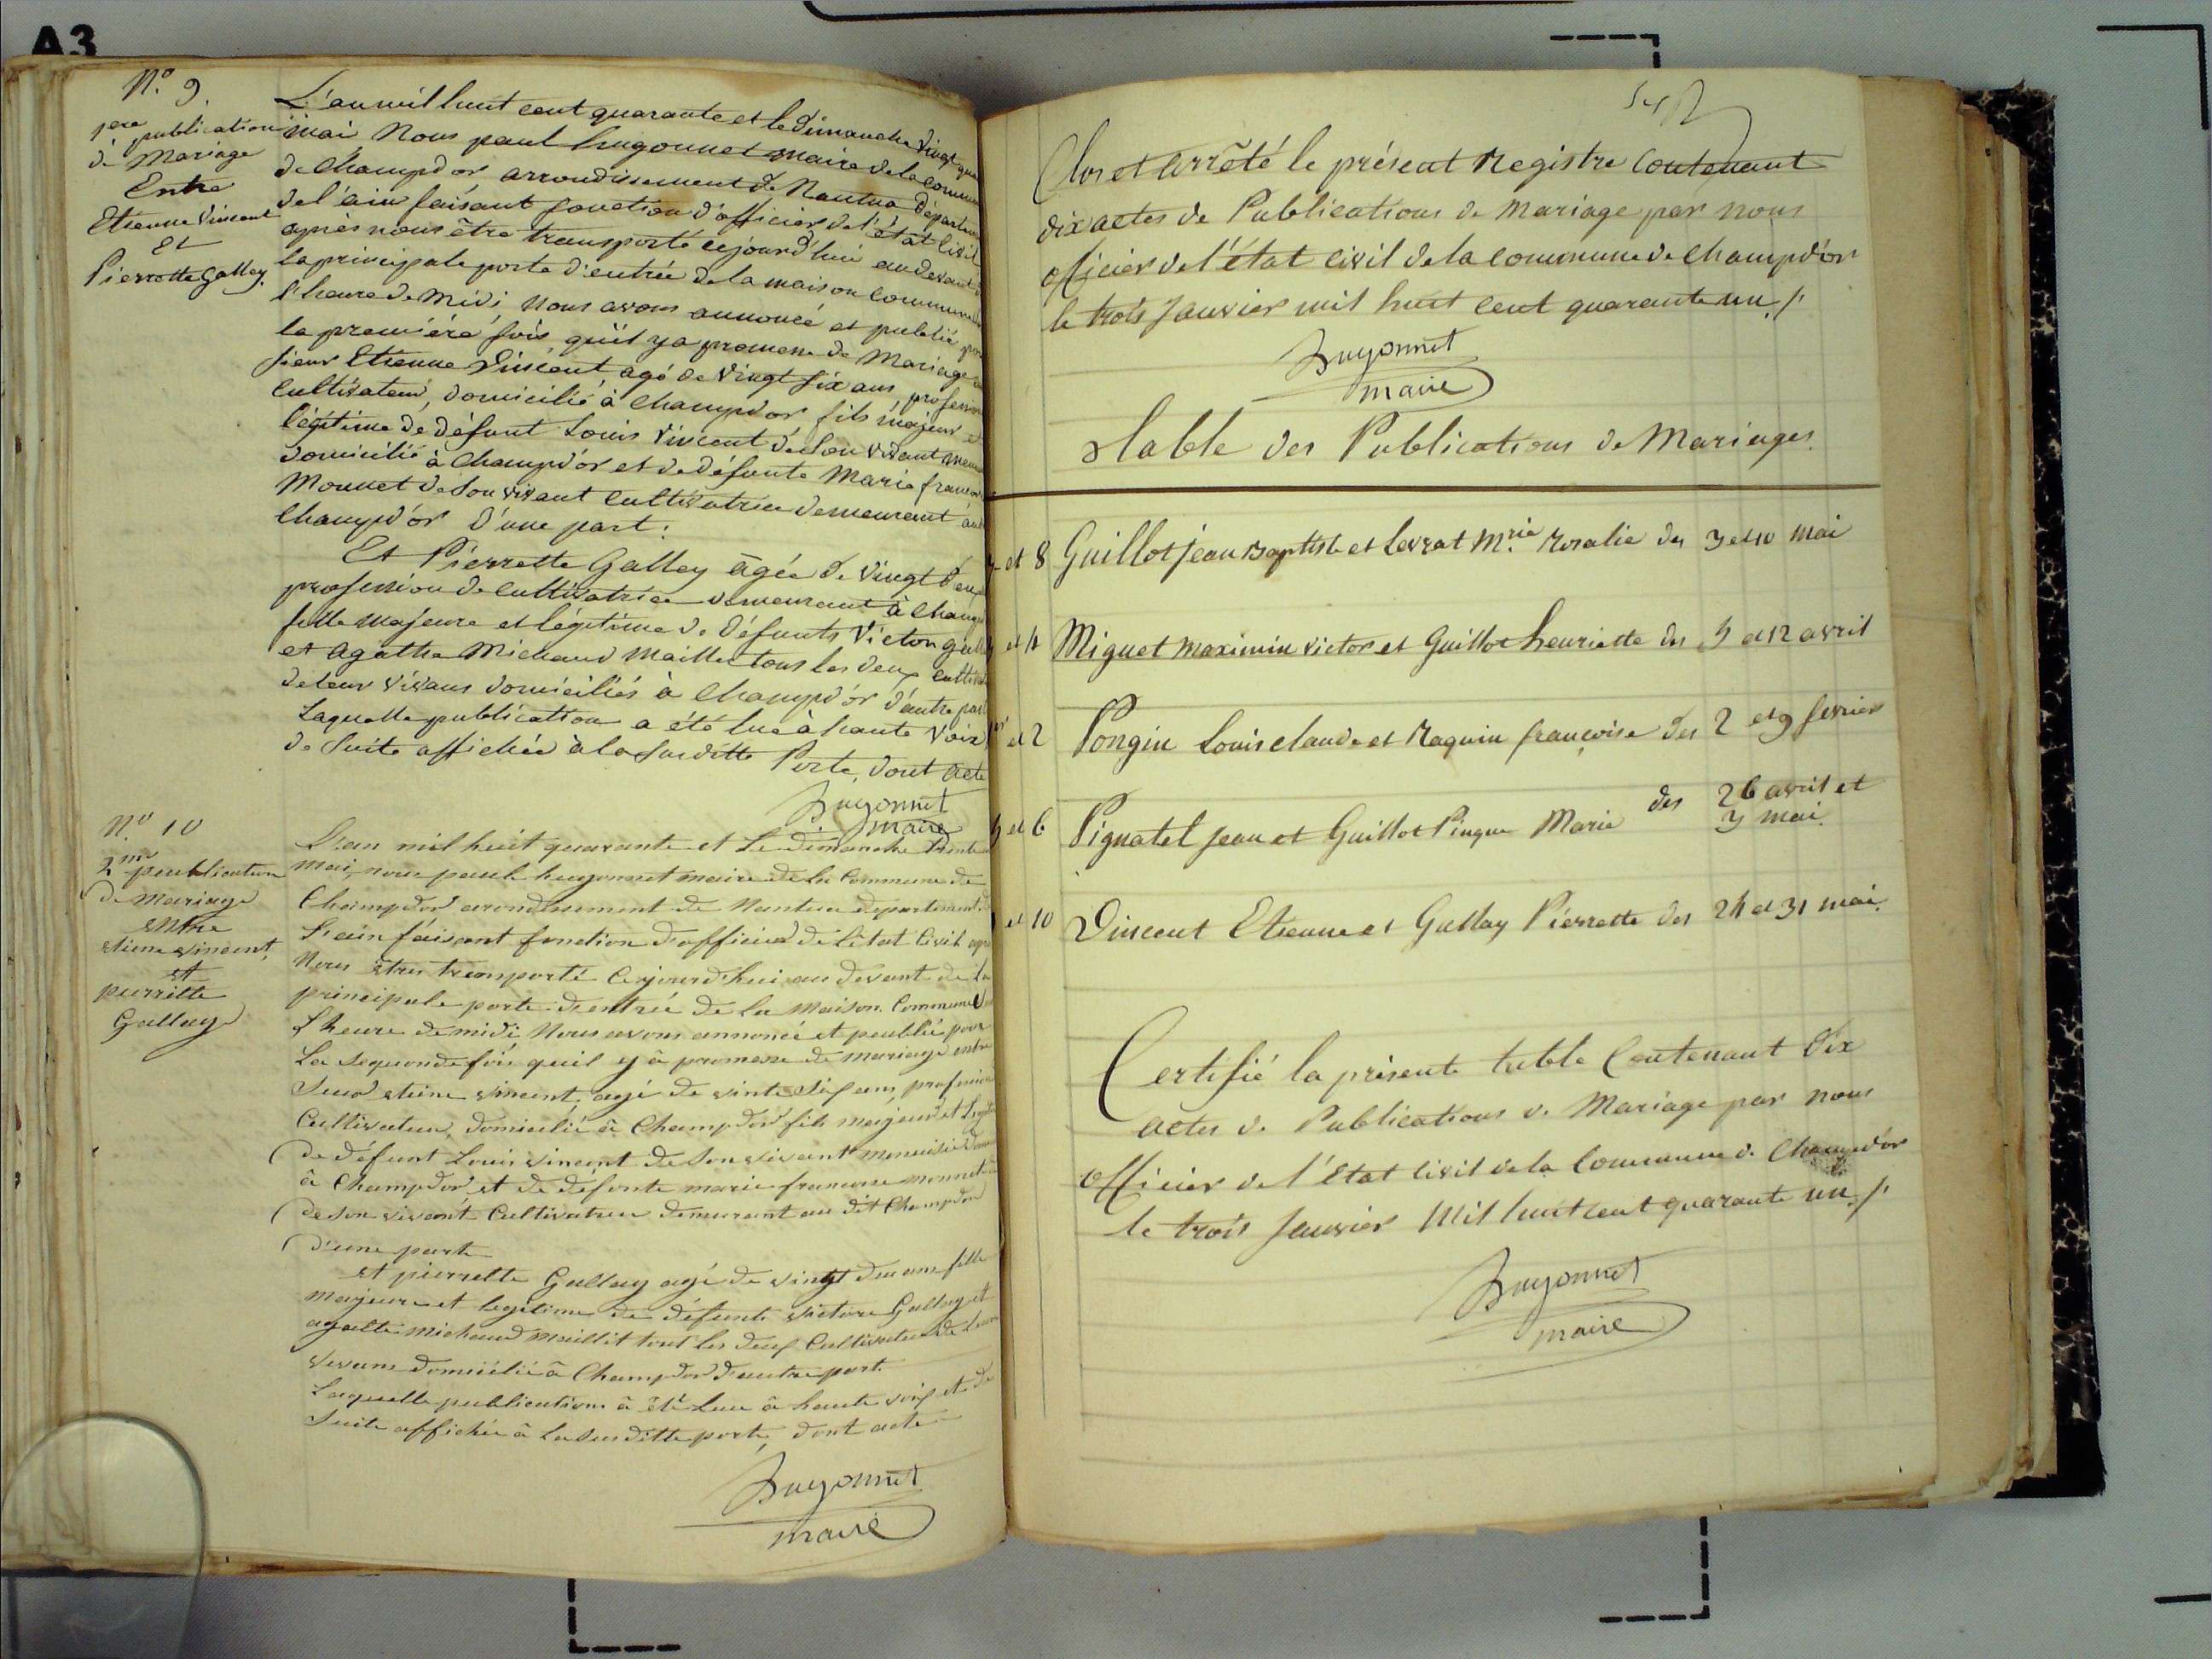 A3
N.o 9.
1ere publication
de Mariage
Entre
Etienne Vincent
Et
Pierrette Gallay.
L'an mil huit cent quarante et le dimanche vingt
mai Nous paul hugonnet maire de la
de Champd'or arrondissement de Nantua
de l'ain faisant fonction d'officier de l'état Civil
après nous être transporté cejourd'hui au devant
la principale porte d'entrée de la maison commune
l'heure de midi nous avons annoncé et publié
la première fois qu'il y a promesse de Mariage
sieur Etienne Vincent agé de vingt six ans, profession
Cultivateur, domicilié à Champd'or, fils majeur
légitime de défunt Louis Vincent de son vivant
domicilié à Champd'or et de défunte Marie
Monnet de son vivant Cultivatrice demeurant
Champd'or d'une part:
Et Pierrette Gallay âgée de vingt
profession de Cultivatrice demeurant à
fille majeure et légitime de défunts Victor
et Agathe Michaud Maillet tous les deux
de leur vivans domiciliés à Champd'or d'autre
Laquelle publication a été lue à haute Voix
de suite affichée à la susditte Porte, dont acte
hugonnet
maire
N.o 10
2me publication
de mariage
entre
etiene vincent,
et
pierrette
Gallay
L'an mil huit quarante et le dimanche trente
mai, nous paul hugonnet maire de la Commune de
Champdor arondissement de Nantua departement
L'ain faisant fonction d'officier de l'état Civil
Nous être transporté Cejourd'hui au devant de la
principale porte d'entrée de la maison Commune
L'heure de midi Nous avons annoncé et publié pour
La segonde fois quil y à promesse de mariage entre
Sieur etiene vincent agé de vinte six ans, profession
Cultivateur, domicilié à Champdor fils majeur et
de défunt Louis vincent de son vivant
à Champdor et de défunte marie francoise monnet
de son vivant Cultivatrice demeurant au dit Champdor
d'une part
et pierrette Gallay agé de vingt deu ans fille
majeure et legitime de défunts victore Gallay et
agatte michaud maillit tout les deux Cultivateur de leur
vivans domicilié à Champdor d'autre part
Laquelle publication à été Lue à haute voix et de
Suite affichée à La susditte porte, dont acte
hugonnet
maire
Clos et arrêté le présent Registre Contenant
dix actes de Publications de Mariage par nous
officier de l'état civil de la Commune de Champd'or
le trois Janvier mil huit cent quarante un ./.
hugonnet
maire
Table des Publications de Mariages.
et 8 Guillot jean Baptiste et Levrat M.rie Rosalie des 3 et 10 mai
et 4 Miguet maximin victor et Guillot henriette des 5 et 12 avril
et 2 Pongin Louis claude et Raquin françoise des 2 et 9 fevrier
et 6 Pignatel jean et Guillot Pingue Marie des 26 avril et
3 mai.
et 10 Vincent Etienne et Gallay Pierrette des 24 et 31 mai.
Certifié la présente table Contenant dix
actes de Publications de Mariage par nous
officier de l'état civil de la Commune de Champd'or
le trois Janvier Mil huit cent quarante un ./.
hugonnet
maire